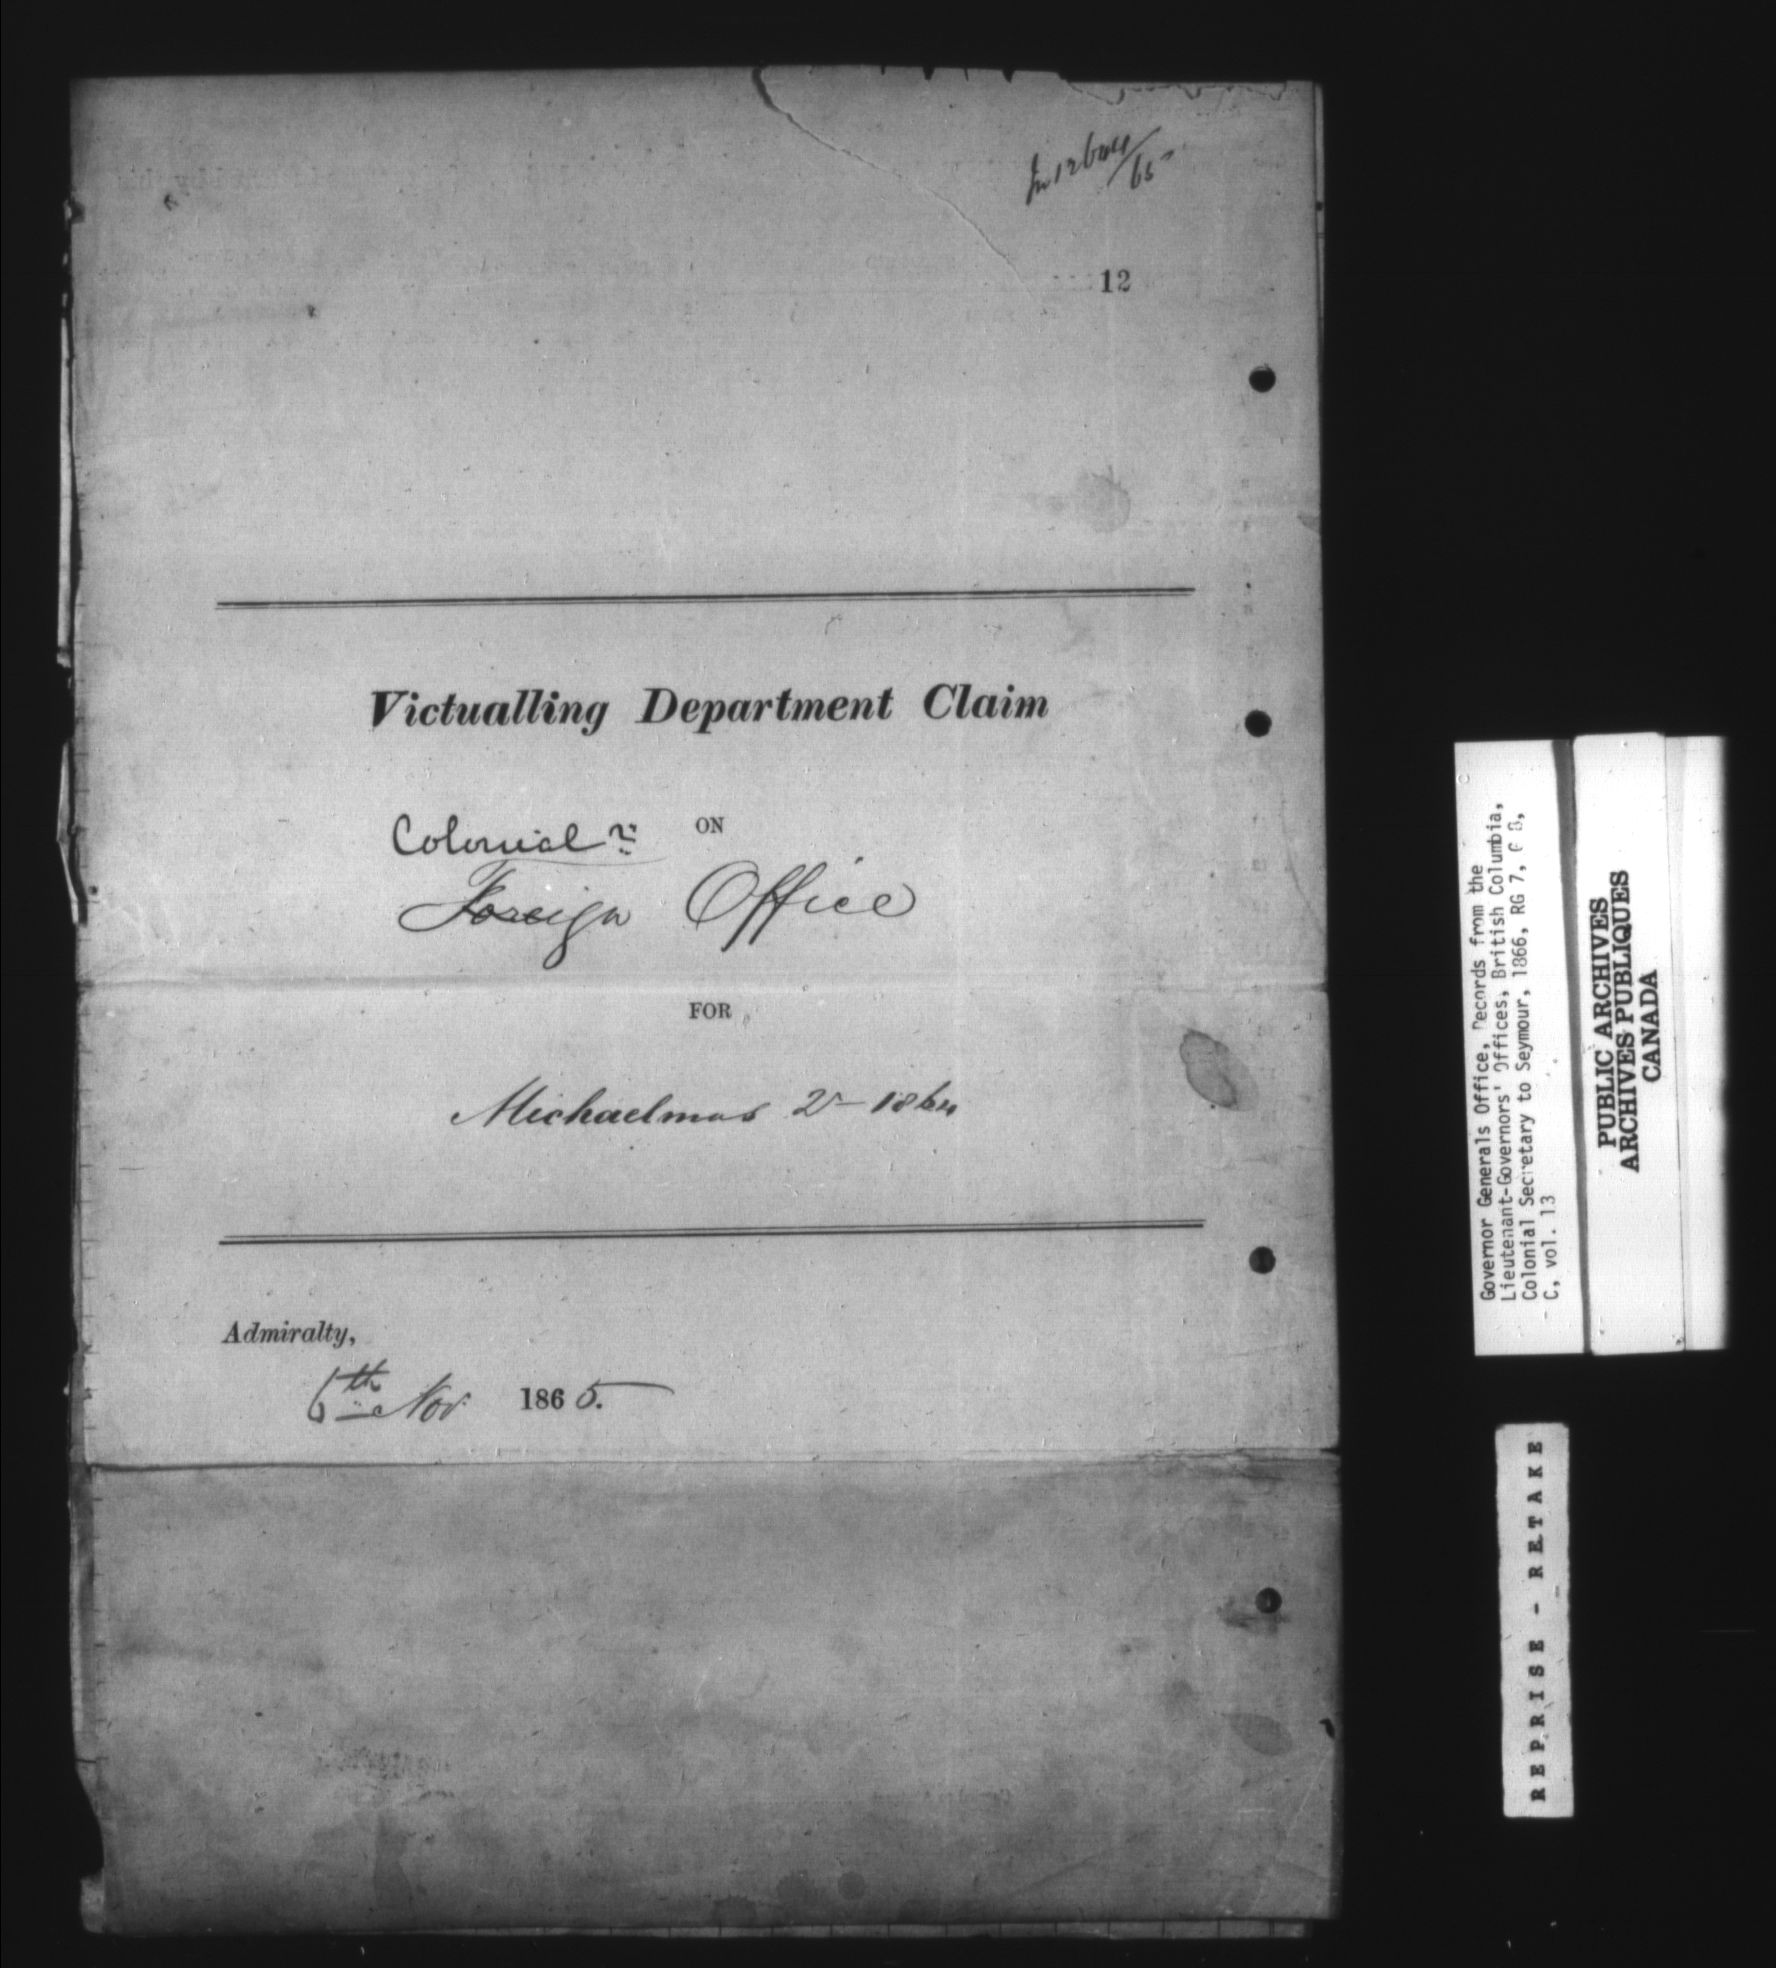 12604/65
12
Victualling Department Claim
ON
Colonial
Foreign Office
FOR
Michaelmas 1864
Admiralty,
6th Nov 1865.
Governor Generals Office, Records from the
Lieutenant-Governors' Offices, British Columbia,
Colonial Secretary to Seymour, 1866, RG 7, G 8,
C, vol. 13
PUBLIC ARCHIVES
ARCHIVES PUBLIQUES
CANADA
REPRISE - RETAKE